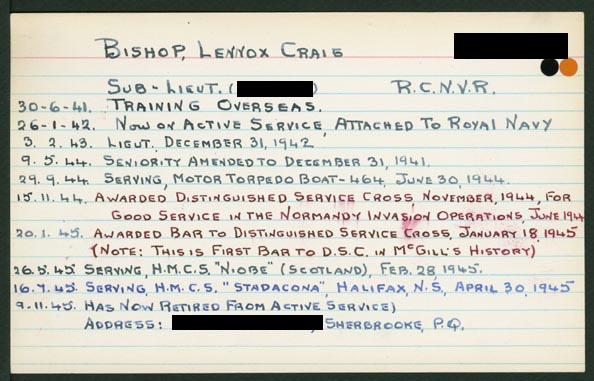 BISHOP, LENNOX CRAIG
SUB-LIEUT. ( ) R.C.N.V.R.
30-6-41. TRAINING OVERSEAS.
26-1-42. NOW ON ACTIVE SERVICE, ATTACHED TO ROYAL NAVY
3.2.43. LIEUT. DECEMBER 31, 1942
9.5.44. SENIORITY AMENDED TO DECEMBER 31, 1941.
29.9.44. SERVING, MOTOR TORPEDO BOAT-464, JUNE 30, 1944.
15.11.44. AWARDED DISTINGUISHED SERVICE CROSS, NOVEMBER, 1944, FOR
GOOD SERVICE IN THE NORMANDY INVASION OPERATIONS, JUNE 1944
20.1.45. AWARDED BAR TO DISTINGUISHED SERVICE CROSS, JANUARY 18, 1945
(NOTE: THIS IS FIRST BAR TO D.S.C. IN MCGILL'S HISTORY)
26.5.45 SERVING, H.M.C.S. "NIOBE" (SCOTLAND), FEB. 28, 1945.
16.7.45. SERVING, H.M.C.S. "STADACONA", HALIFAX, N.S., APRIL 30, 1945
9.11.45. HAS NOW RETIRED FROM ACTIVE SERVICE)
ADDRESS: , SHERBROOKE, P.Q.